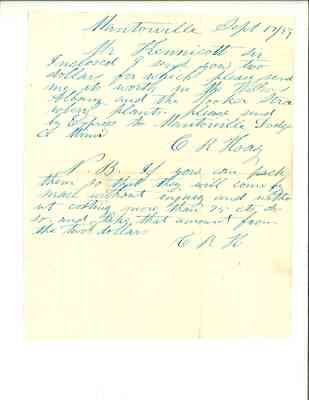 Mantorville Sept 17/59
Mr Kennicott Sir
Inclosed I send you two
dollars for which please send
me its worth in the Wilson's
Albany and the Hooker Stra
wberry plants. please send
by Express to Mantorville Dodge
Co Minn
C R Hoag
N. B. If you can pack
them so that they will come by
mail without injury and witho
ut costing more than 75 cts do
so and take that amount from
the two dollars
C R H